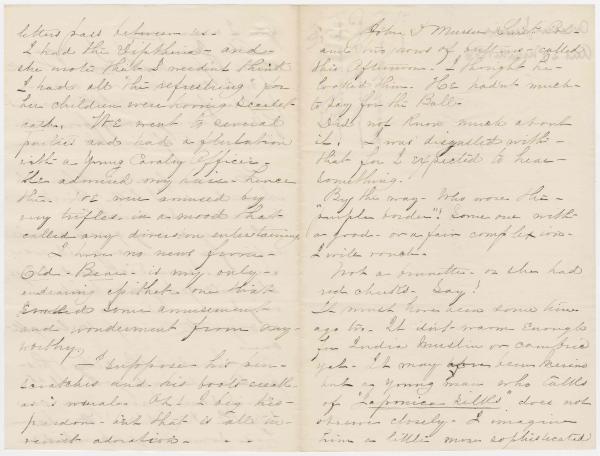 letters pass between us -
I had the Diptheria - and -
she wrote that I needn't think
I had all "the refreshing" for
her children were having Scarlet
We went to several
parties and had a flirtation
with a Young Cavalry Officer -
He admired my hair - hence
this. We were amused by
very trifles in a mood that
called any diversion entertaining
I have no news from -
Old - Bear - is my only -
some amusement
and wonderment from my
worthy.
I suppose - his pen -
scratches and his boots creak -
as is usual - Oh! I beg his -
pardon - but that is all
adoration -
John I
and rows of buttons - called
this afternoon. I thought he
looked thin. He hadn't much -
to say for the Ball -
Did not know much about
it. I was disgusted with -
that for I expected to hear -
something.
By the way - Who wore the -
"purple border"! Some one with
a good - or a fair complexion -
I will vouch -
Not a brunette - or she had
red cheeks - Say!
It must have been some time
ago too - It isn't warm enough
for India Muslin or cambric
yet - It may
but a young man who talks
of "Japonica" does not
observe closely - I imagine
him a little more sophisticated